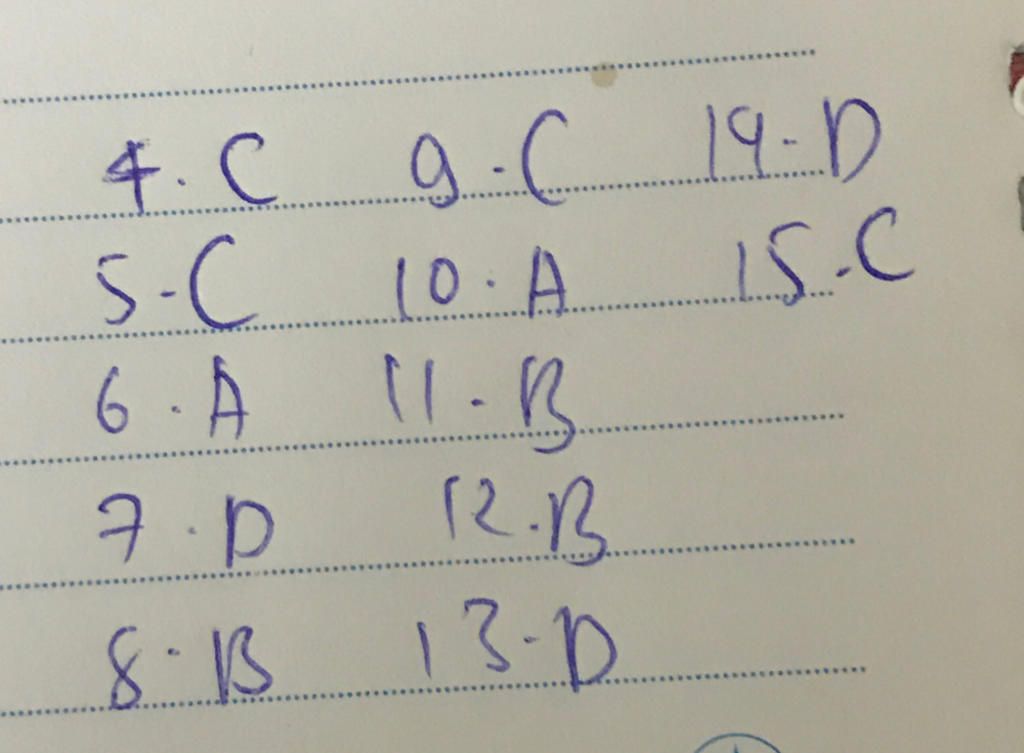 4. C 9 - C 14 - D
5 - C 10 . A 15 - C
6 . A 11 - B
7 . D 12 . B
8 . B 13 - D